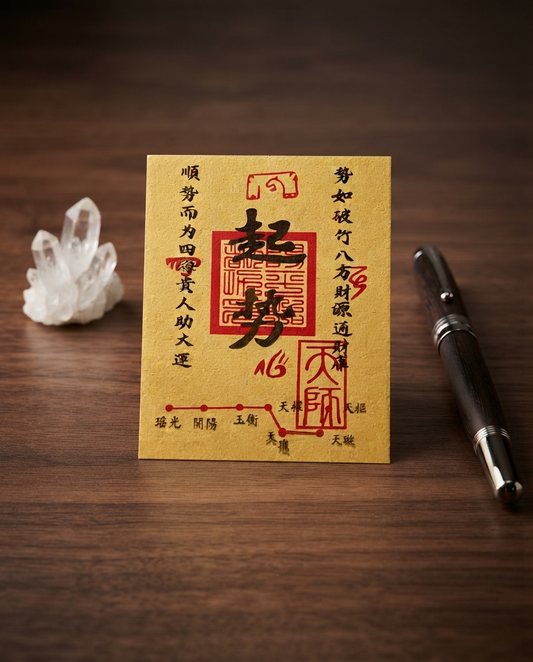 勢如破竹八方財源通財庫
起勢
順勢而为四得貴人助大運
心
天師
瑶光
開陽
玉衡
天權
天璣
天璇
天樞